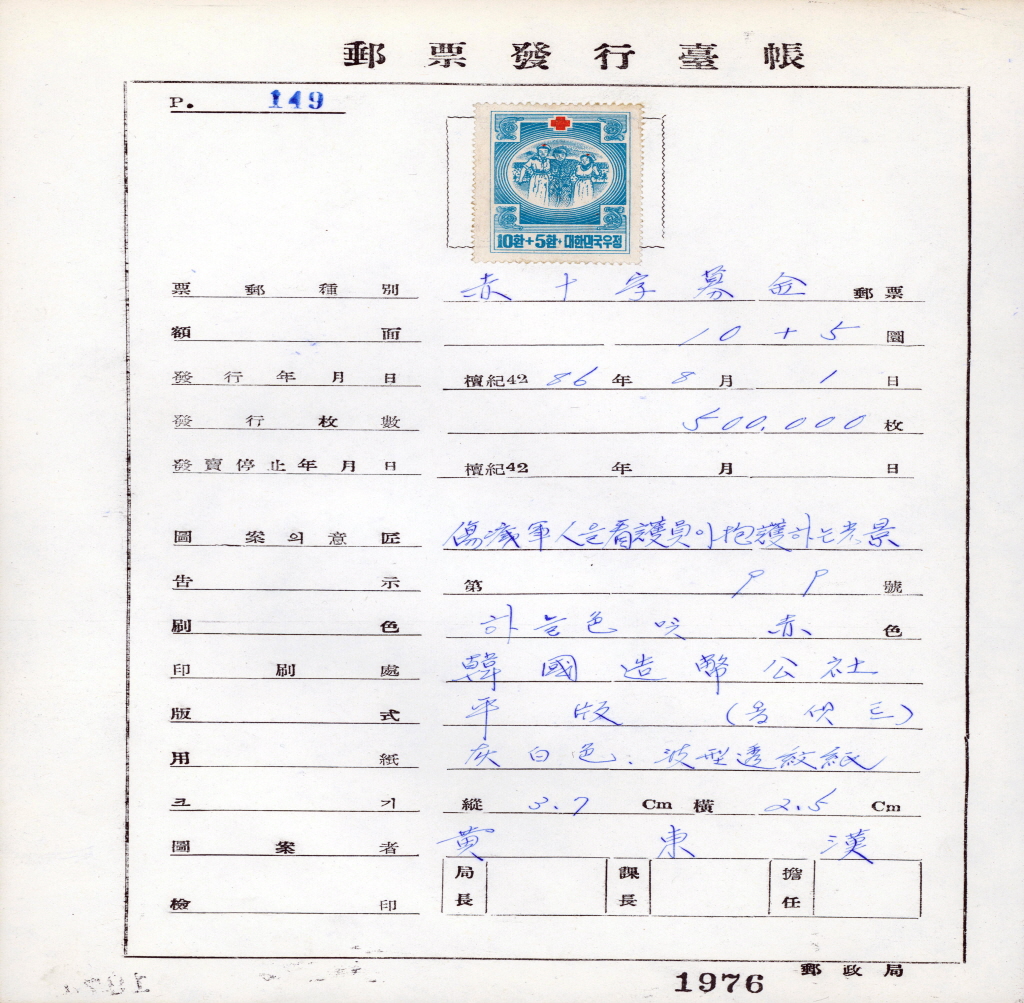 郵票發行臺帳
P. 149
10환+5환·대한민국우정
票郵種別 赤十字募金 郵票
額面 10+5 圜
發行年月日 檀紀4286年8月1日
發行枚數 500,000枚
發賣停止年月日 檀紀42 年 月 日
圖案의意匠 傷痍軍人을看護員이抱護하는光景
告示 第99號
刷色 하늘色 및 赤色
印刷處 韓國造幣公社
版式 平版
用紙 灰白色. 波型透紋紙
크기 縱 3.7 Cm 橫 2.5 Cm
圖案者 黃東漢
檢印 局長 課長 擔任
郵政局
1976